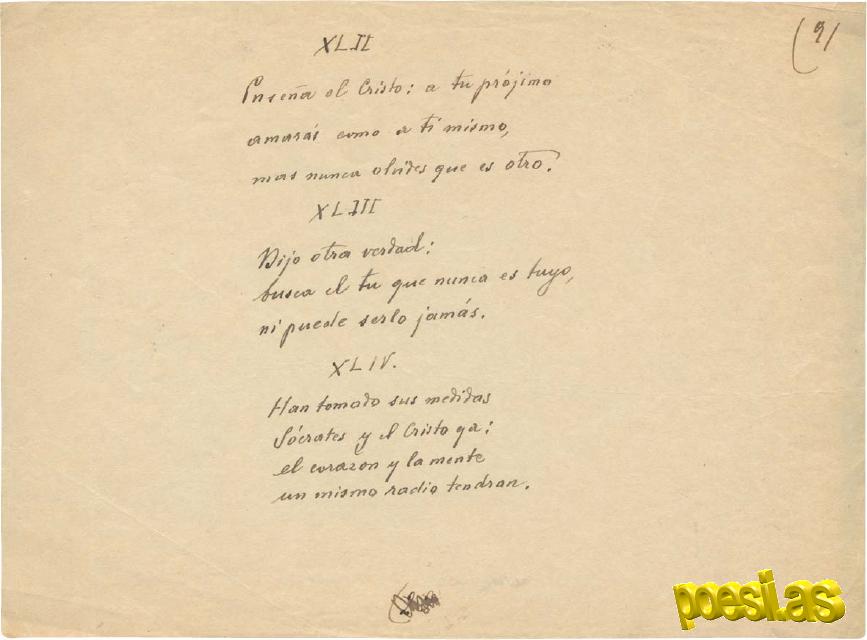 (9)
XLII
Enseña el Cristo: a tu prójimo
amarás como a ti mismo,
mas nunca olvides que es otro.
XLIII
Dijo otra verdad:
busca el tu que nunca es tuyo,
ni puede serlo jamás.
XLIV.
Han tomado sus medidas
Sócrates y el Cristo ya:
el corazon y la mente
un mismo radio tendran.
poesi.as